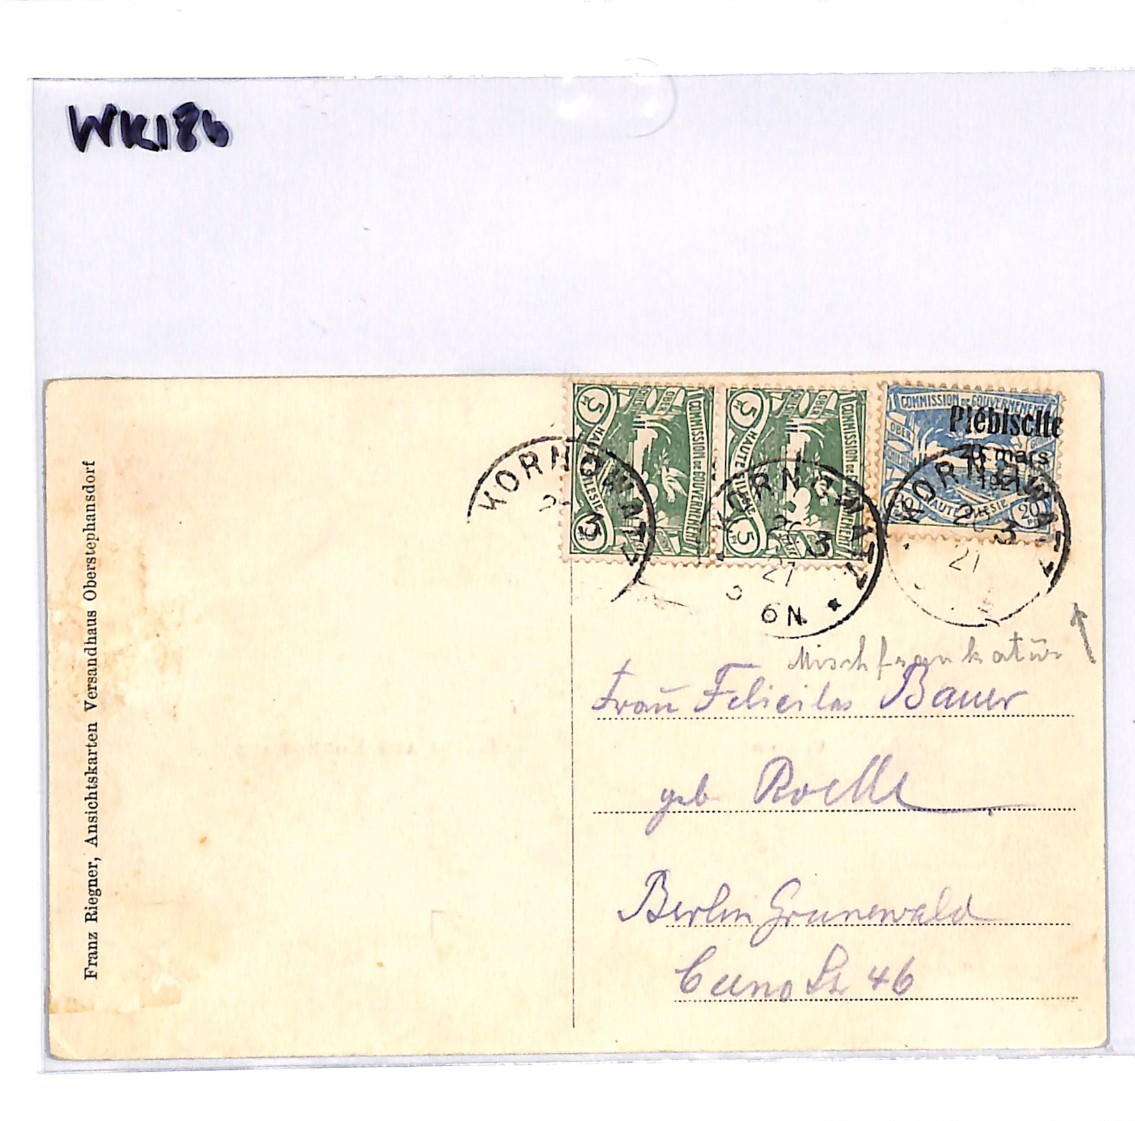 WK186
COMMISSION DE GOUVERNEMENT
HAUTE SILESIE
5
5
COMMISSION DE GOUVERNEMENT
HAUTE SILESIE
5
5
COMMISSION DE GOUVERNEMENT
OBER
Plébiscite
mars
1921
HAUTE SILESIE
20
KORNOWATZ
3
KORNOWATZ
3
21
6N
*
KORNOWATZ
3
21
Mischfrankatur
Frau Felicitas Bauer
geb Roelle
Berlin Grunewald
Cuno St 46
Franz Riegner, Ansichtskarten Versandhaus Oberstephansdorf